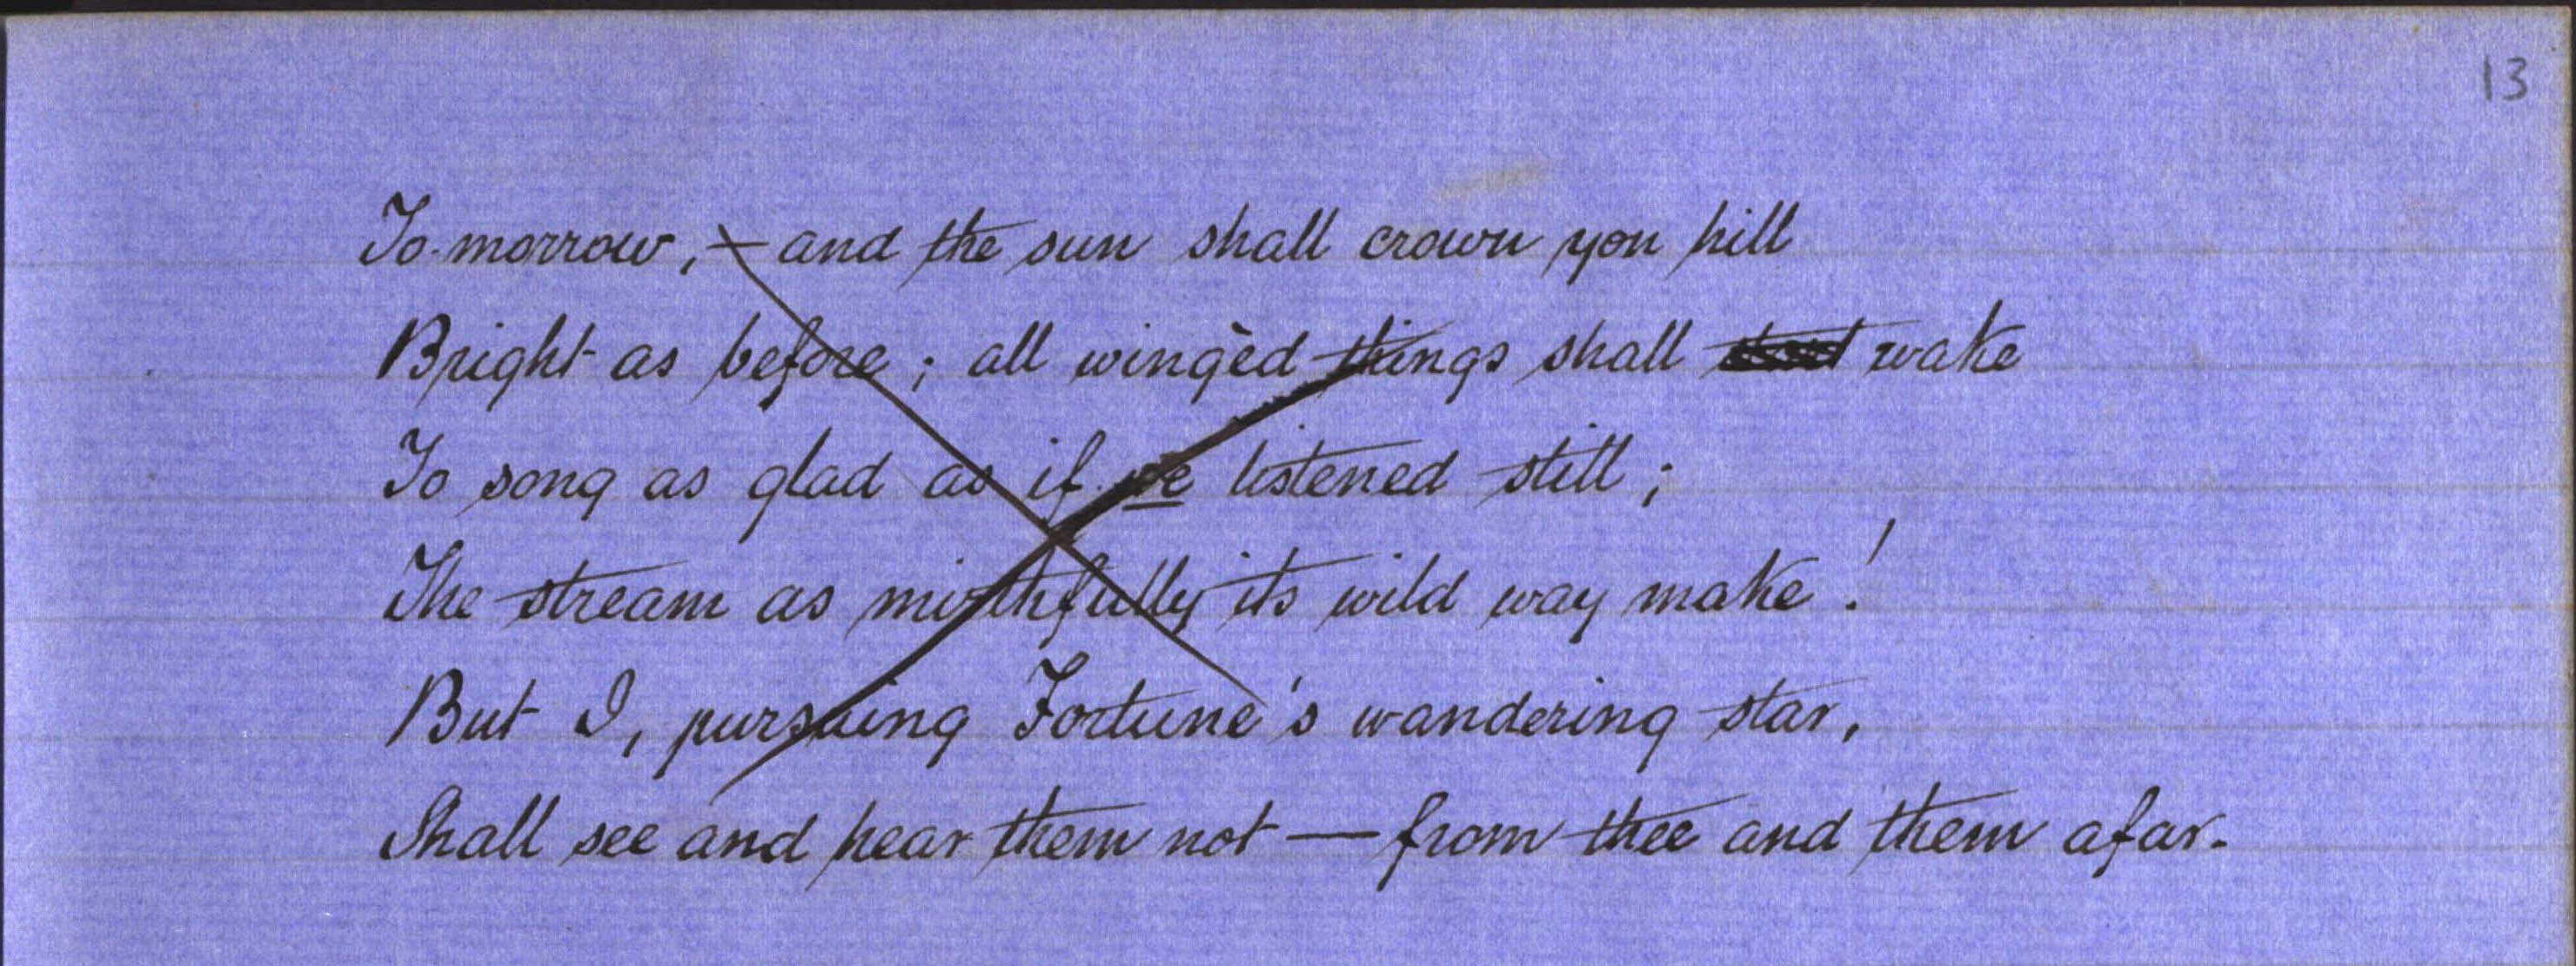 13
To-morrow, — and the sun shall crown yon hill
Bright as before; all wingèd things shall wake
To song as glad as if we listened still;
The stream as mirthfully its wild way make!
But I, pursuing Fortune's wandering star,
Shall see and hear them not — from thee and them afar.